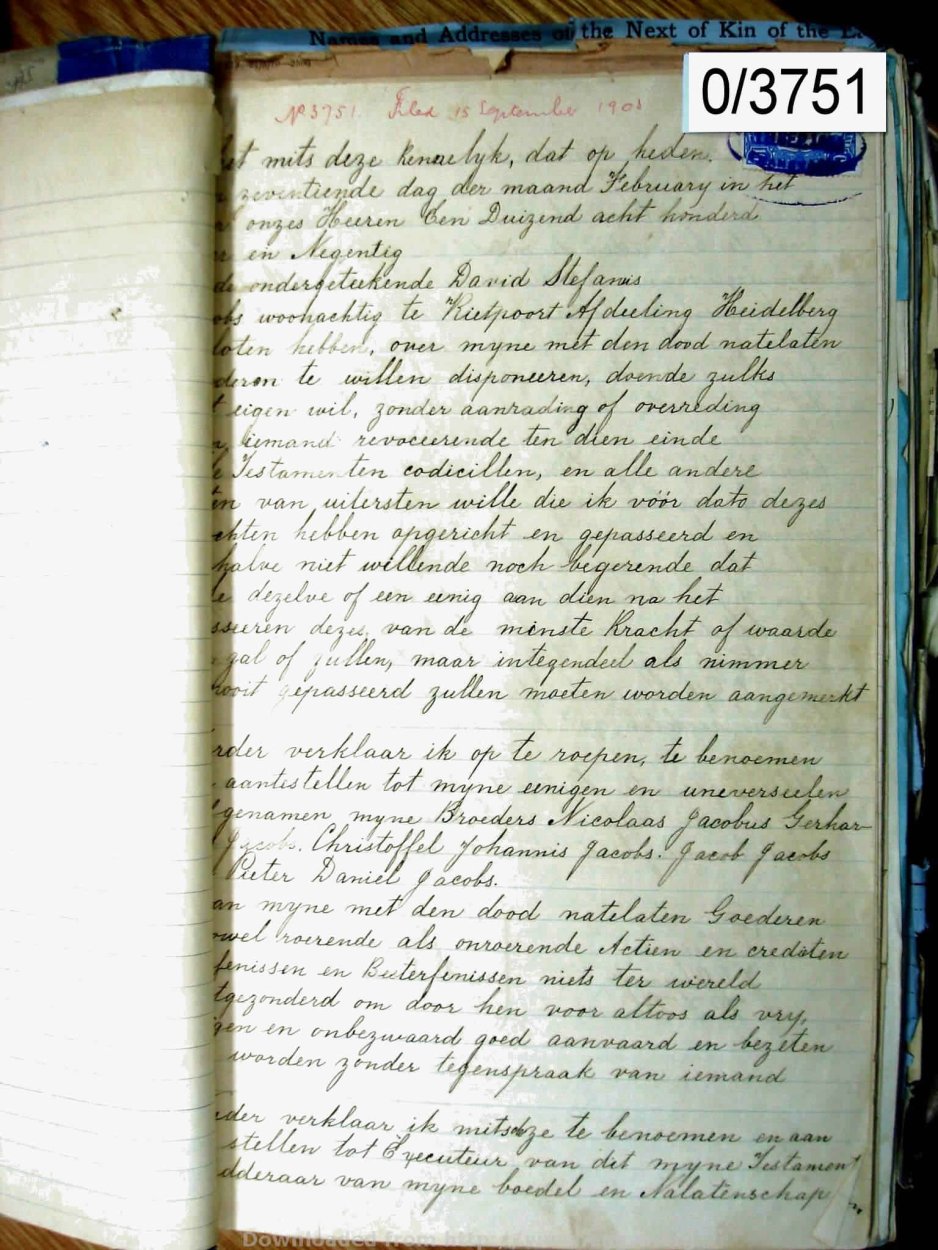 Names and Addresses of the Next of Kin of the
0/3751
No 3751. Filed 15 September 190
et mits deze kennelyk, dat op heden.
zeventiende dag der maand February in het
onzes Heeren Een Duizend acht honderd
en Negentig
de ondergeteekende David Stefanus
obs woonachtig te Rietpoort Afdeeling Heidelberg
loten hebben, over myne met den dood natelaten
deren te willen disponeeren, doende zulks
t eigen wil, zonder aanrading of overreding
n, iemand revoceerende ten dien einde
e Testamenten codicillen, en alle andere
en van uitersten wille die ik vóór dato dezes
chten hebben opgericht en gepasseerd en
halve niet willende noch begerende dat
e dezelve of een eenig aan dien na het
sseeren dezes, van de minste Kracht of waarde
gal of zullen, maar integendeel als nimmer
nooit gepasseerd zullen moeten worden aangemerkt
rder verklaar ik op te roepen, te benoemen
aantestellen tot myne eenigen en uneverseelen
genamen myne Broeders Nicolaas Jacobus Gerhar-
Jacobs. Christoffel Johannis Jacobs. Jacob Jacobs
Pieter Daniel Jacobs.
an myne met den dood natelaten Goederen
wel roerende als onroerende Actien en crediten
fenissen en Besterfenissen niets ter wereld
tgezonderd om door hen voor altoos als vry,
gen en onbezwaard goed aanvaard en bezeten
worden zonder tegenspraak van iemand
der verklaar ik mitsdeze te benoemen en aan
stellen tot Executeur van dit myne Testament
dderaar van myne boedel en Nalatenschap
Downloaded from http://